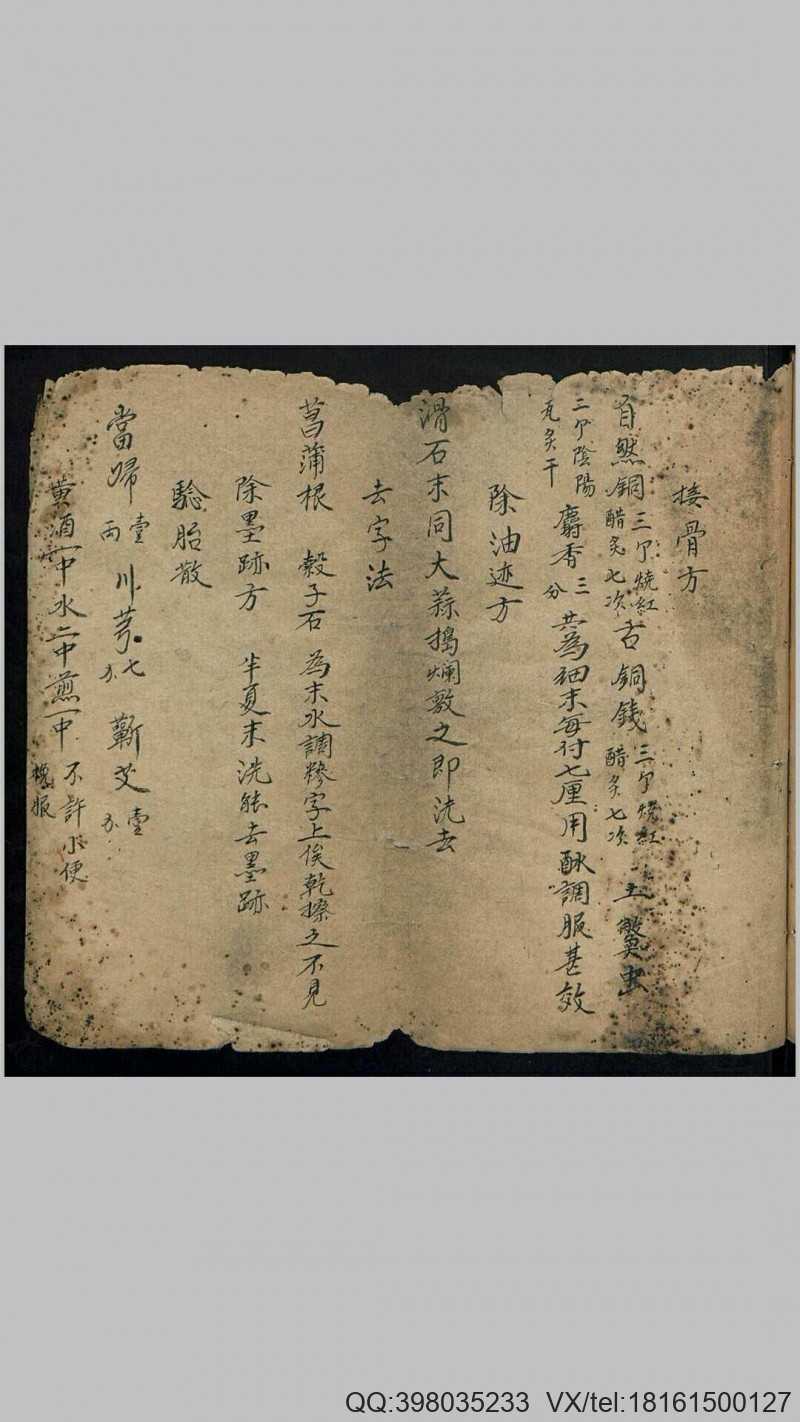 接骨方
自然銅三卩燒紅醋炙七次古銅錢三卩燒紅醋炙七次土鱉虫
三卩陰陽瓦炙干麝香三分共為細末每付七厘用酥調服甚效
除油迹方
滑石末同大蒜搗爛敷之即洗去
去字法
菖蒲根 穀子石 為末水調糝字上俟乾擦之不見
除墨跡方 半夏末洗能去墨跡
驗胎散
當歸壹両川芎七分蘄艾壹分
黃酒一中水二中煎一中不許小便 服
QQ:398035233 VX/tel:18161500127